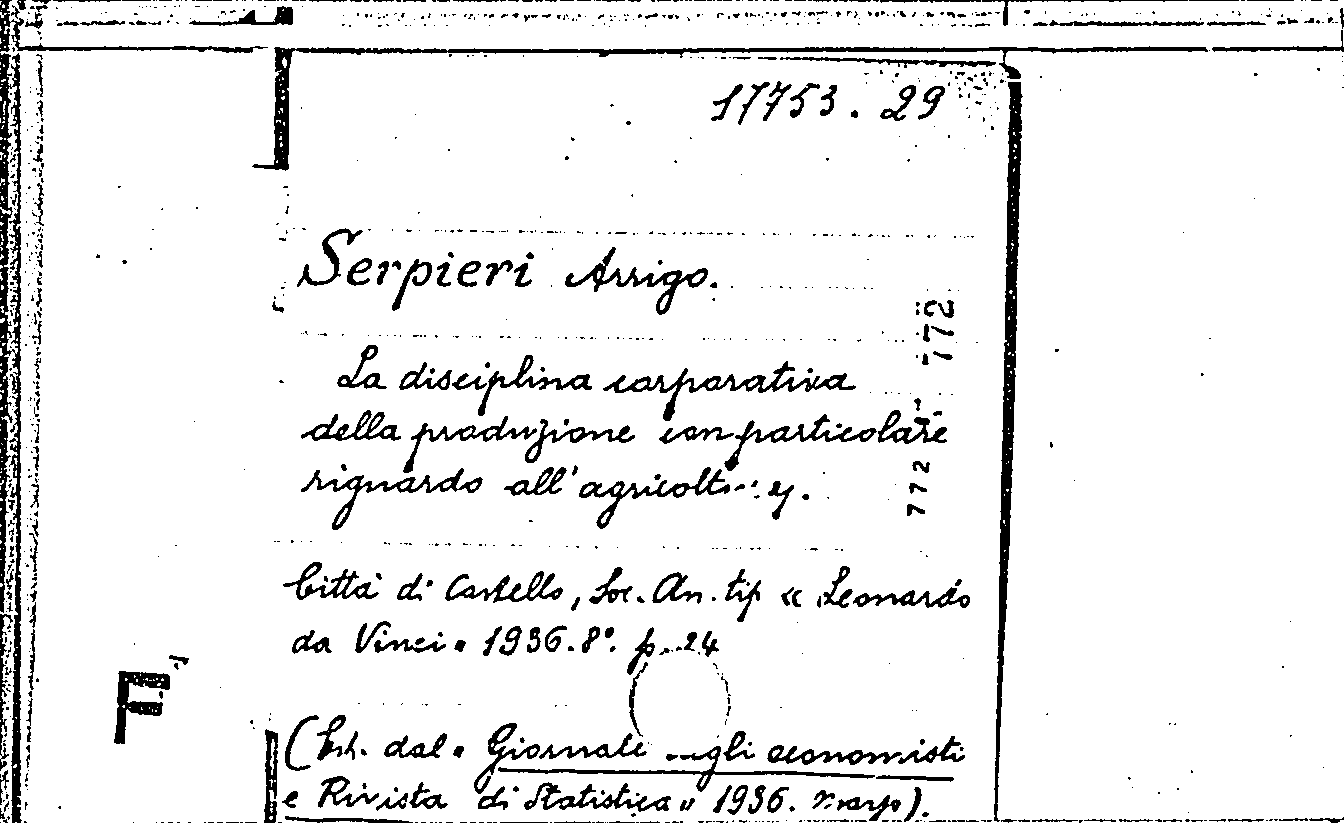 17753.29
Serpieri Arrigo.
La disciplina corporativa
della produzione con particolare
riguardo all'
Città di Castello, Soc. An. tip « Leonardo
da Vinci » 1936. 8°. p. 24
(Estr. dal « Giornale degli economisti
e Rivista di Statistica » 1936. marzo).
772
772
F